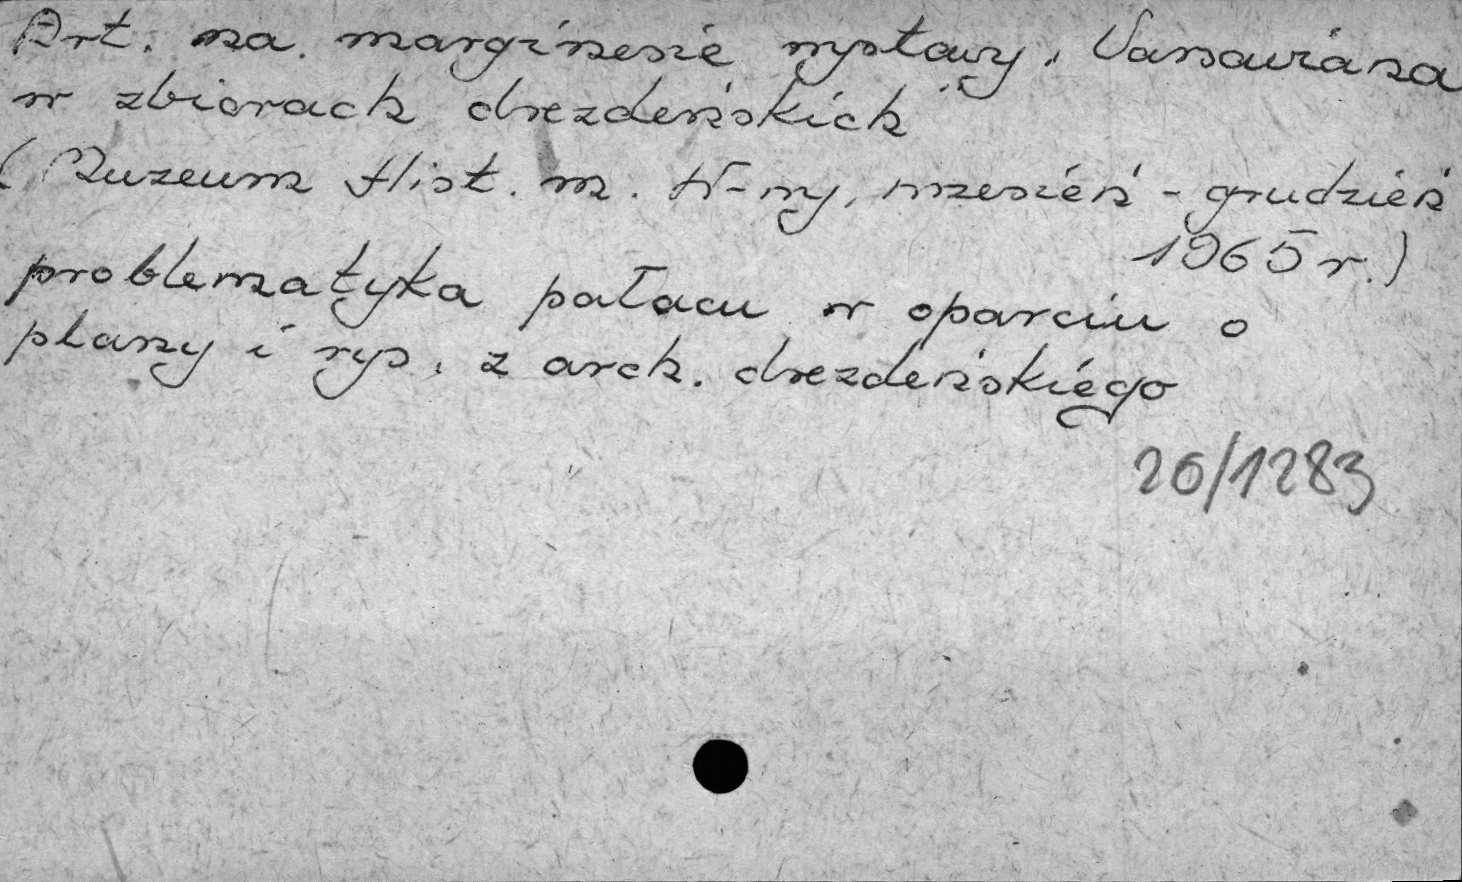 Art. na marginesie wystawy „Varsaviana
w zbiorach drezdeńskich"
(Muzeum Hist. m. W-wy, wrzesień - grudzień
1965 r.)
problematyka pałacu w oparciu o
plany i rys. z arch. drezdeńskiego
26/1283